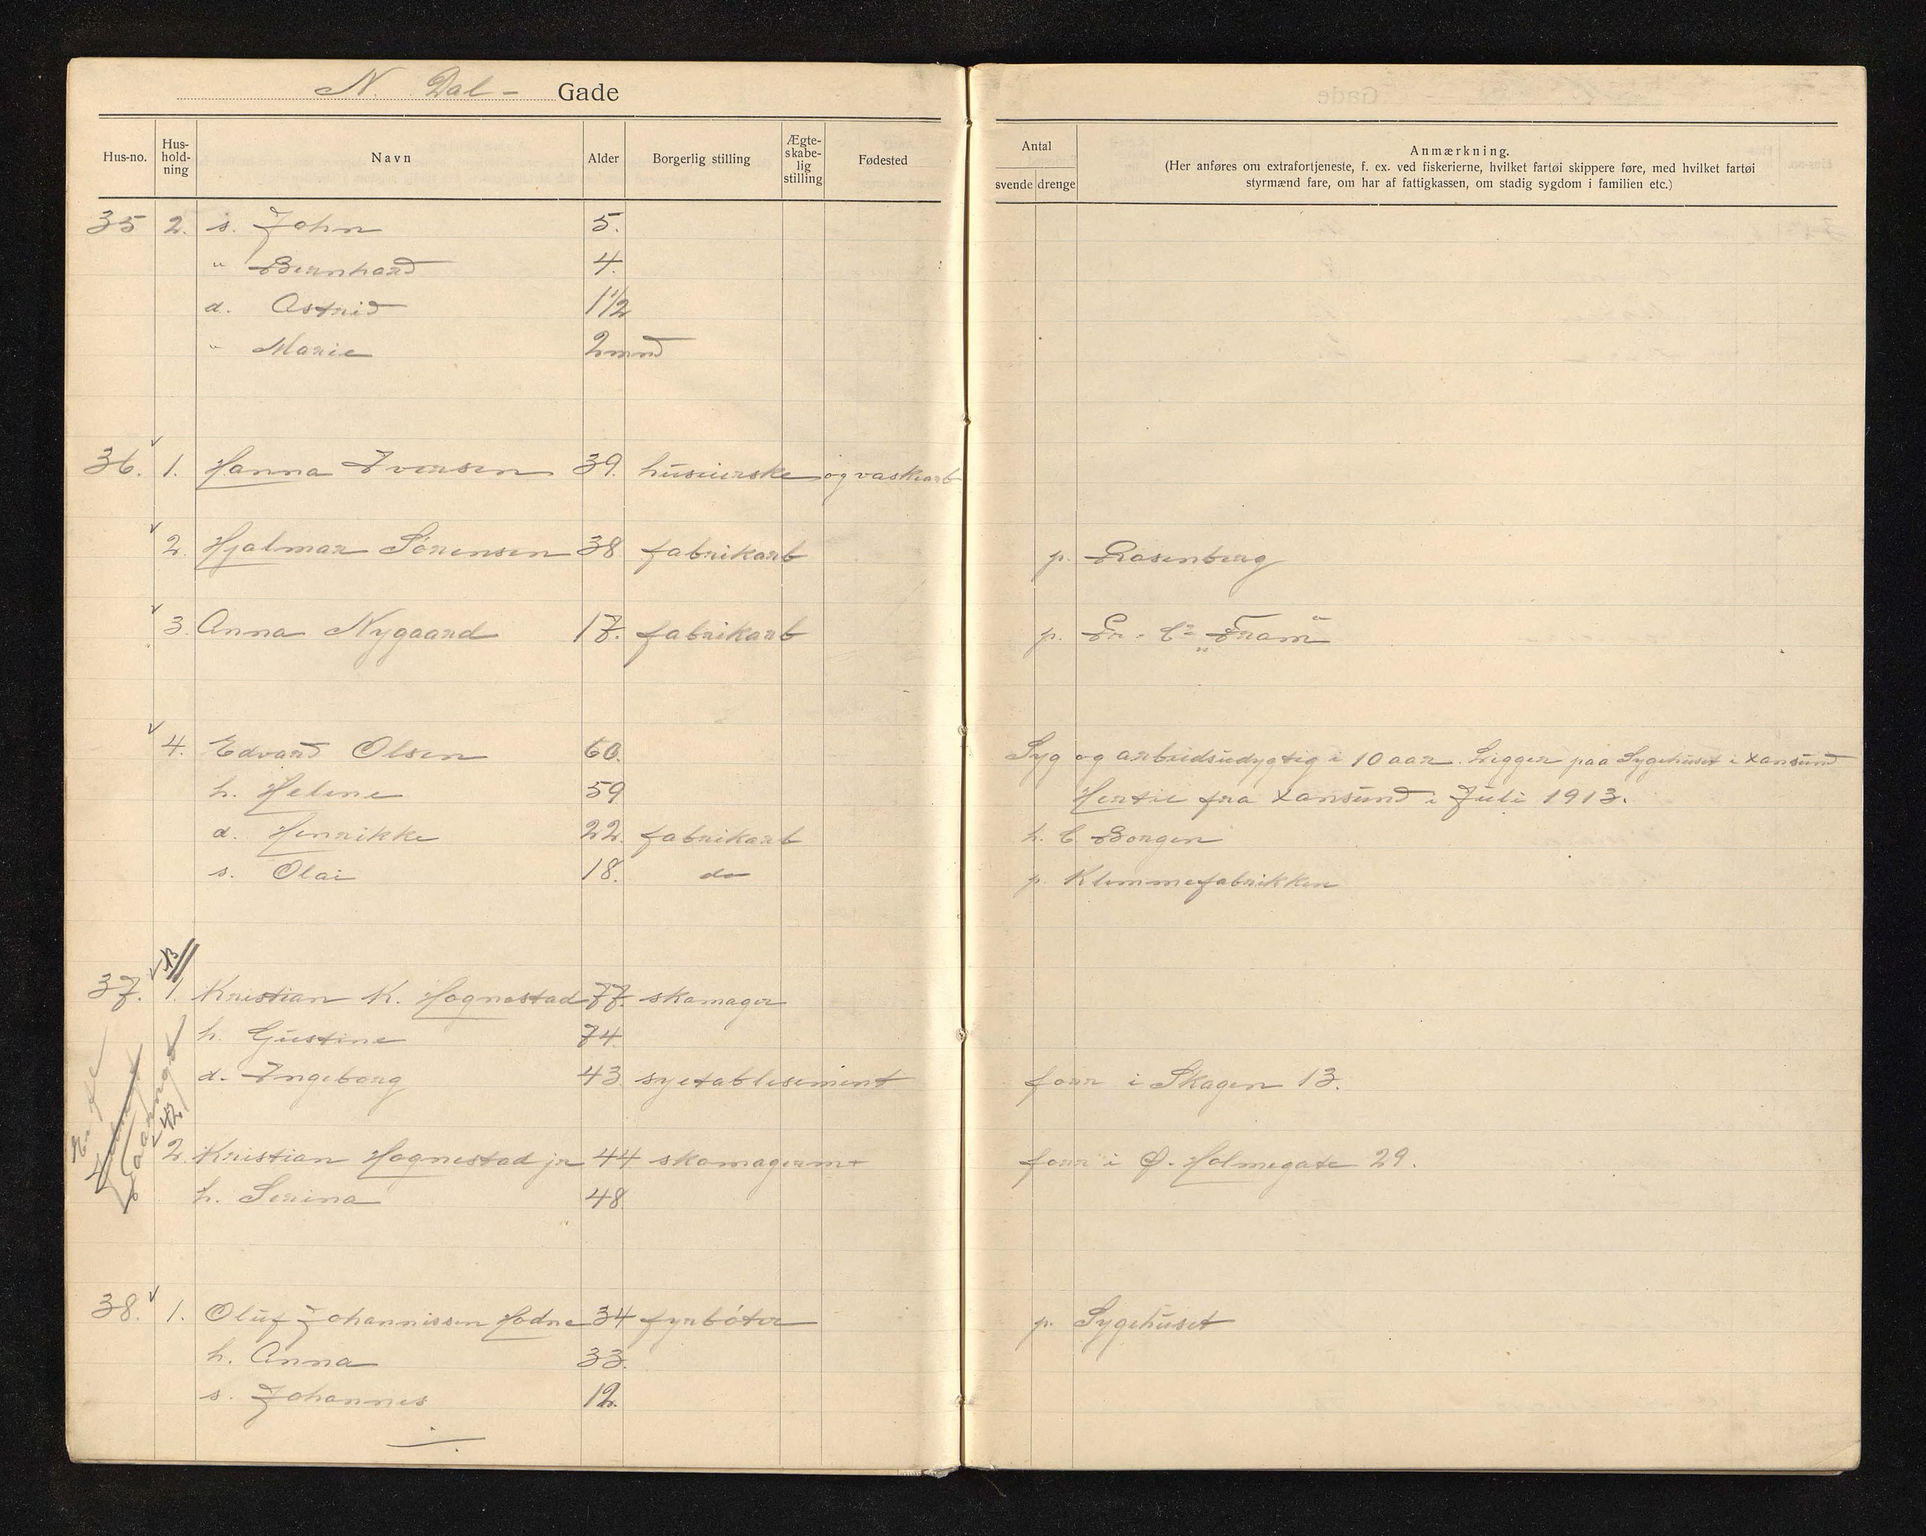 N. Dal- Gade
Hus-no. Hus-hold-ning Navn Alder Borgerlig stilling Ægte-skabe-lig stilling Fødested Antal svende drenge Anmærkning.
(Her anføres om extrafortjeneste, f. ex. ved fiskerierne, hvilket fartøi skippere føre, med hvilket fartøi
styrmænd fare, om har af fattigkassen, om stadig sygdom i familien etc.)
35 2. s. John 5.
" Bernhard 4.
d. Astrid 1 1/2
" Marie 2 mnd
36. 1. Hanna Iversen 39. huseierske og vaskearb
2. Hjalmar Sørensen 38 fabrikarb p. Rosenberg
3. Anna Nygaard 17. fabrikarb p. Pr. Co "Fram"
4. Edvard Olsen 60. Syg og arbeidsudygtig i 10 aar. Ligger paa Sygehuset i Xansund
h. Helene 59 Hertil fra Xansund i Juli 1913.
d. Henrikke 22. fabrikarb h. C Borgen
s. Olai 18. do p. Klemmefabrikken
37. 1. Kristian K. Hognestad 77. skomager
h. Gustine 74
d. Ingeborg 43 syetablisement forr i Skagen 13.
2. Kristian Hognestad jr 44 skomagerm+ forr i Ø. Holmegate 29.
h. Serina 48
38. 1. Oluf Johannissen Hodne 34 fyrbøter p. Sygehuset
h. Anna 33.
s. Johannes 12.